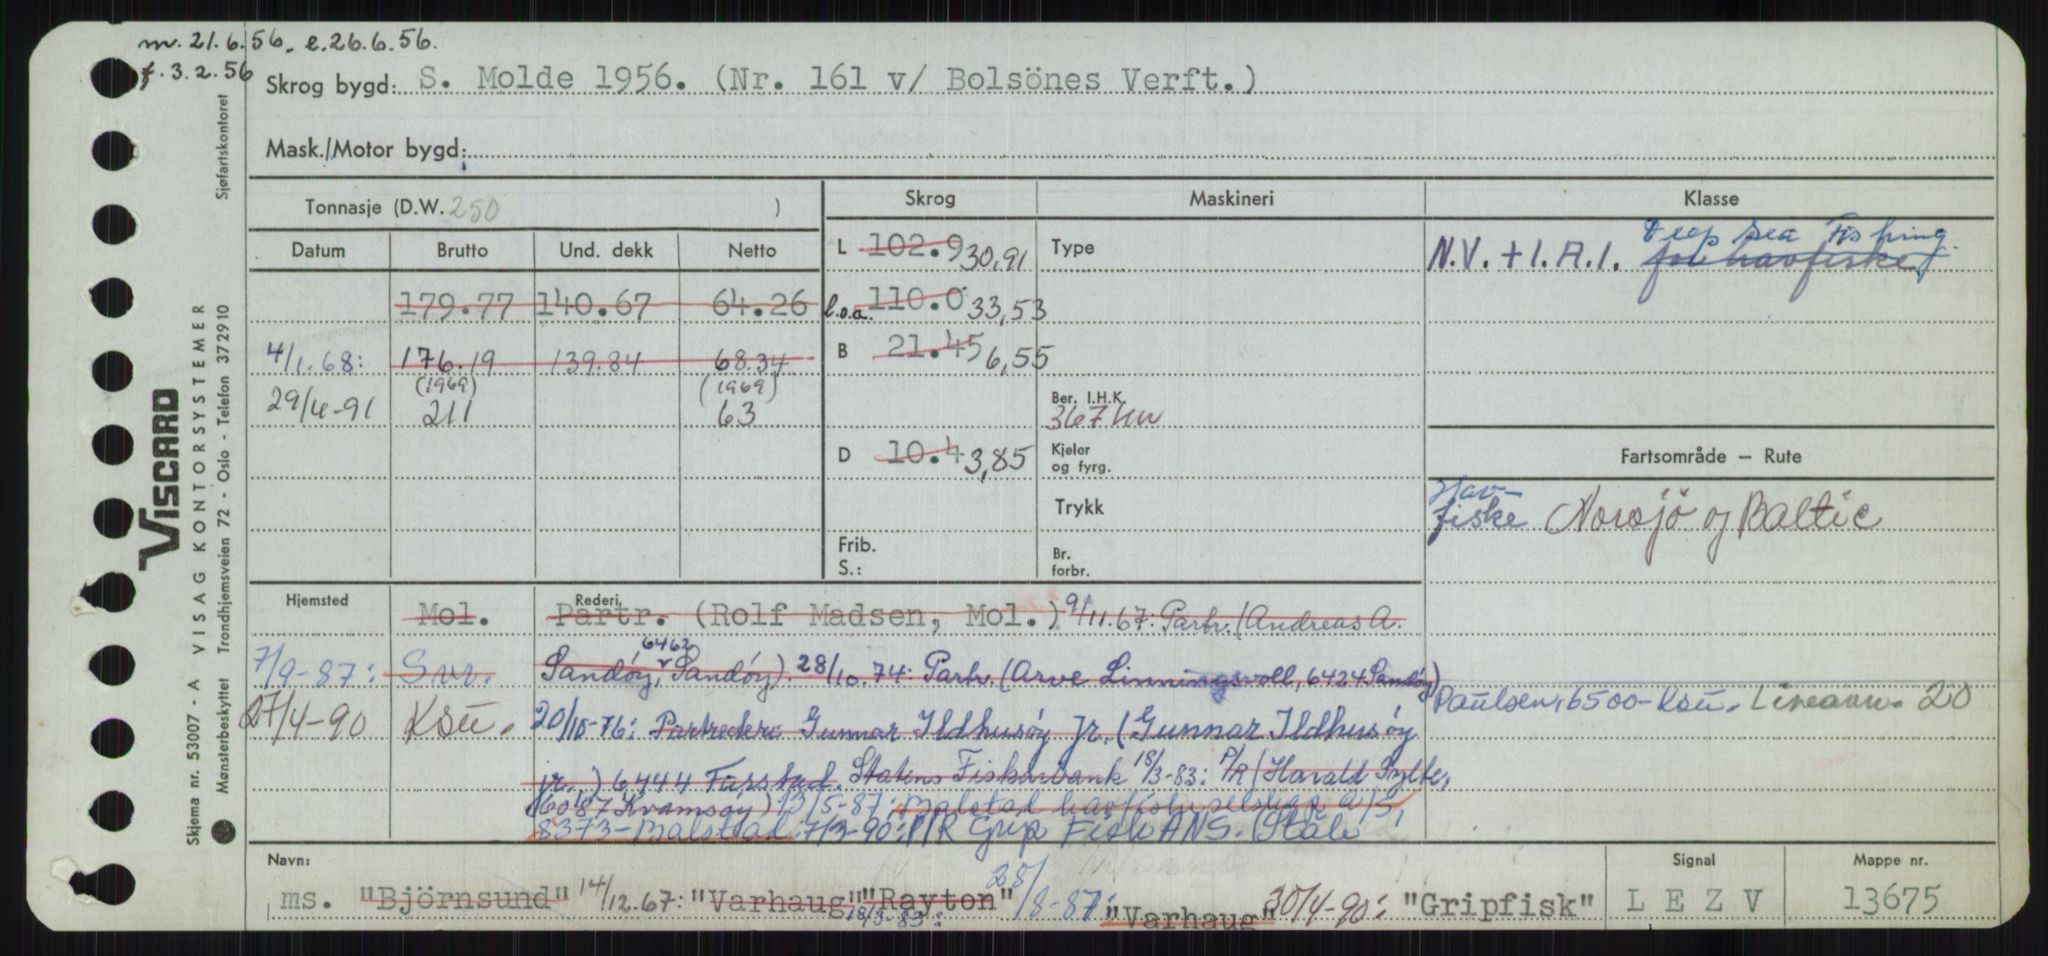 m. 21.6.56. e. 26.6.56.
f. 3.2.56
Skrog bygd: S. Molde 1956. (Nr. 161 v/ Bolsönes Verft.)
Mask./Motor bygd:
Sjøfartskontoret
VISCARD
VISAG KONTORSYSTEMER
Trondhjemsveien 72 - Oslo - Telefon 372910
Skjema nr. 53007 - A
Mønsterbeskyttet
Tonnasje (D.W. 250 )
Skrog
Maskineri
Klasse
Datum Brutto Und. dekk Netto
179.77 140.67 64.26
4/1.68: 176.19 139.84 68.34
(1969) (1969)
29/4-91 211 63
L 102.9 30,91
l.o.a. 110.0 33,53
B 21.45 6,55
D 10.4 3,85
Frib.
S.:
Type
Ber. I.H.K.
367 kw
Kjeler
og fyrg.
Trykk
Br.
forbr.
Deep Sea Fishing
N.V. + 1.A.1. for havfiske
Fartsområde — Rute
Hav-
fiske Norsjö og Baltic
Hjemsted
Rederi
Mol. Partr. (Rolf Madsen, Mol.) 9/11.67: Partr. (Andreas A.
6462
7/9-87: Svr. Sandöy, Sandöy). 28/10.74 Partr. (Arve Linningsvoll, 6424 Sandöy)
27/4-90 Ksu. 20/10-76: Partrederi Gunnar Ildhusöy jr. (Gunnar Ildhusöy
jr.) 6444 Farstad. Statens Fiskarbank 18/3-83: P/R (Harald Sylte,
6087 Kvamsøy) 13/5-87: Malstad havfiskeselskap A/S,
8373-Balstad. 7/3-90: P/R Grip Fisk ANS. (Ståle
Paulsen, 6500-Ksu. 20
Navn:
ms. "Björnsund" 14/12.67: "Varhaug" 18/3-83: "Rayton" 28/8-87: "Varhaug" 30/4-90: "Gripfisk"
Signal
L E Z V
Mappe nr.
13675